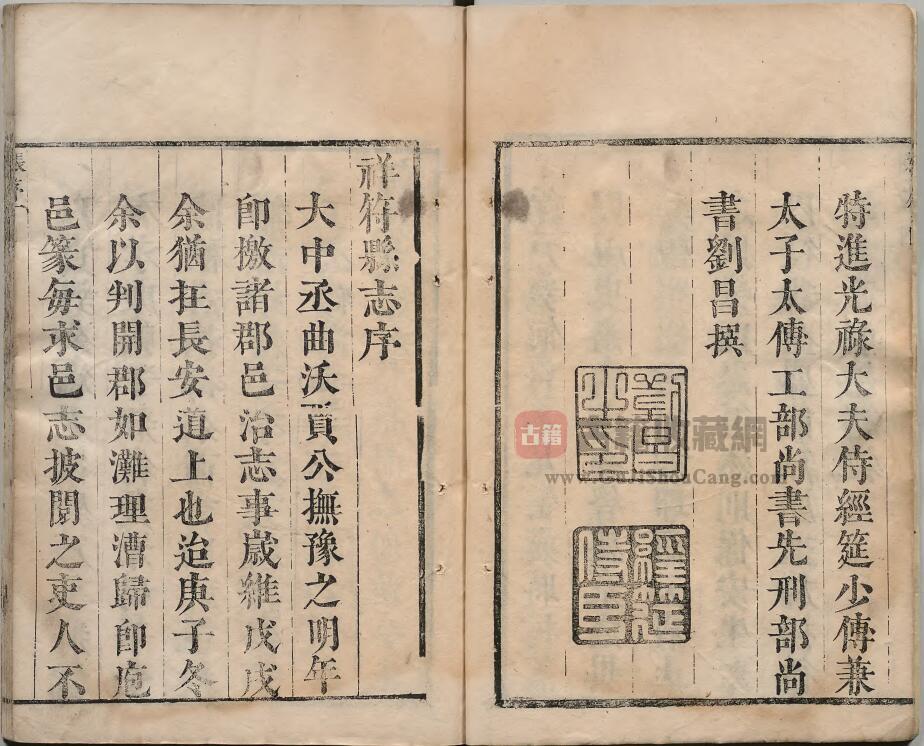 特進光祿大夫侍經筵少傅兼
太子太傅工部尚書先刑部尚
書劉昌撰
經筵侍臣
祥符縣志序
大中丞曲沃賈公撫豫之明年
即檄諸郡邑治志事歲維戊戌
余猶在長安道上也迨庚子冬
余以判開郡如灘理漕歸即庖
邑篆每求邑志披閱之吏人不
古籍
藏網